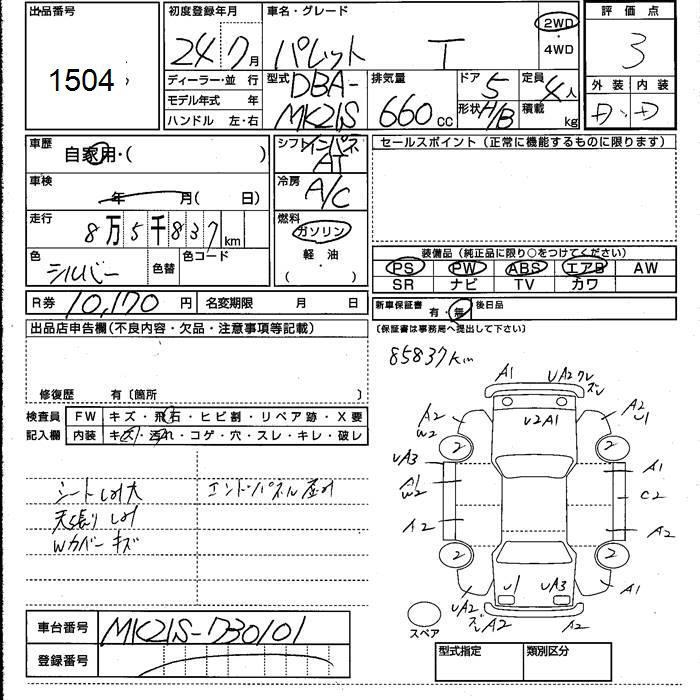 出品番号
1504
初度登録年月
24 7月
車名・グレード
パレット T
2WD
・
4WD
評価点
3
ディーラー・並 行
モデル年式 年
ハンドル 左・右
型式
DBA-
MK21S
排気量
660 cc
ドア 5
形状 H/B
定員 4人
積載 kg
外装 内装
D・D
車歴
自家用・( )
シフト インパネ
AT
セールスポイント(正常に機能するものに限ります)
車検
年 月( 日)
冷房
A/C
走行
8万5千837 km
燃料
ガソリン
軽・油
( )
色
シルバー
色替
色コード
装備品(純正品に限り○をつけてください)
PS PW ABS エアB AW
SR ナビ TV カワ
R券 10,170円
名変期限 月 日
新車保証書 有・無
後日品
(保証書は事務局へ提出して下さい)
出品店申告欄(不良内容・欠品・注意事項等記載)
85837km
修復歴 有〔箇所 〕
検査員
記入欄
FW キズ・飛石・ヒビ割・リペア跡・X要
内装 キズ・汚れ・コゲ・穴・スレ・キレ・破レ
シートしみ大
天張りしみ
Wカバーキズ
エンドパネル歪み
A1
UA2
A2
W2
U2A1
A2
U1
2
2
UA3
A1
W2
A1
C2
A2
A2
2
2
U1
UA3
A1
UA2
A2
A2
スペア
車台番号 MK21S-730101
登録番号
型式指定
類別区分